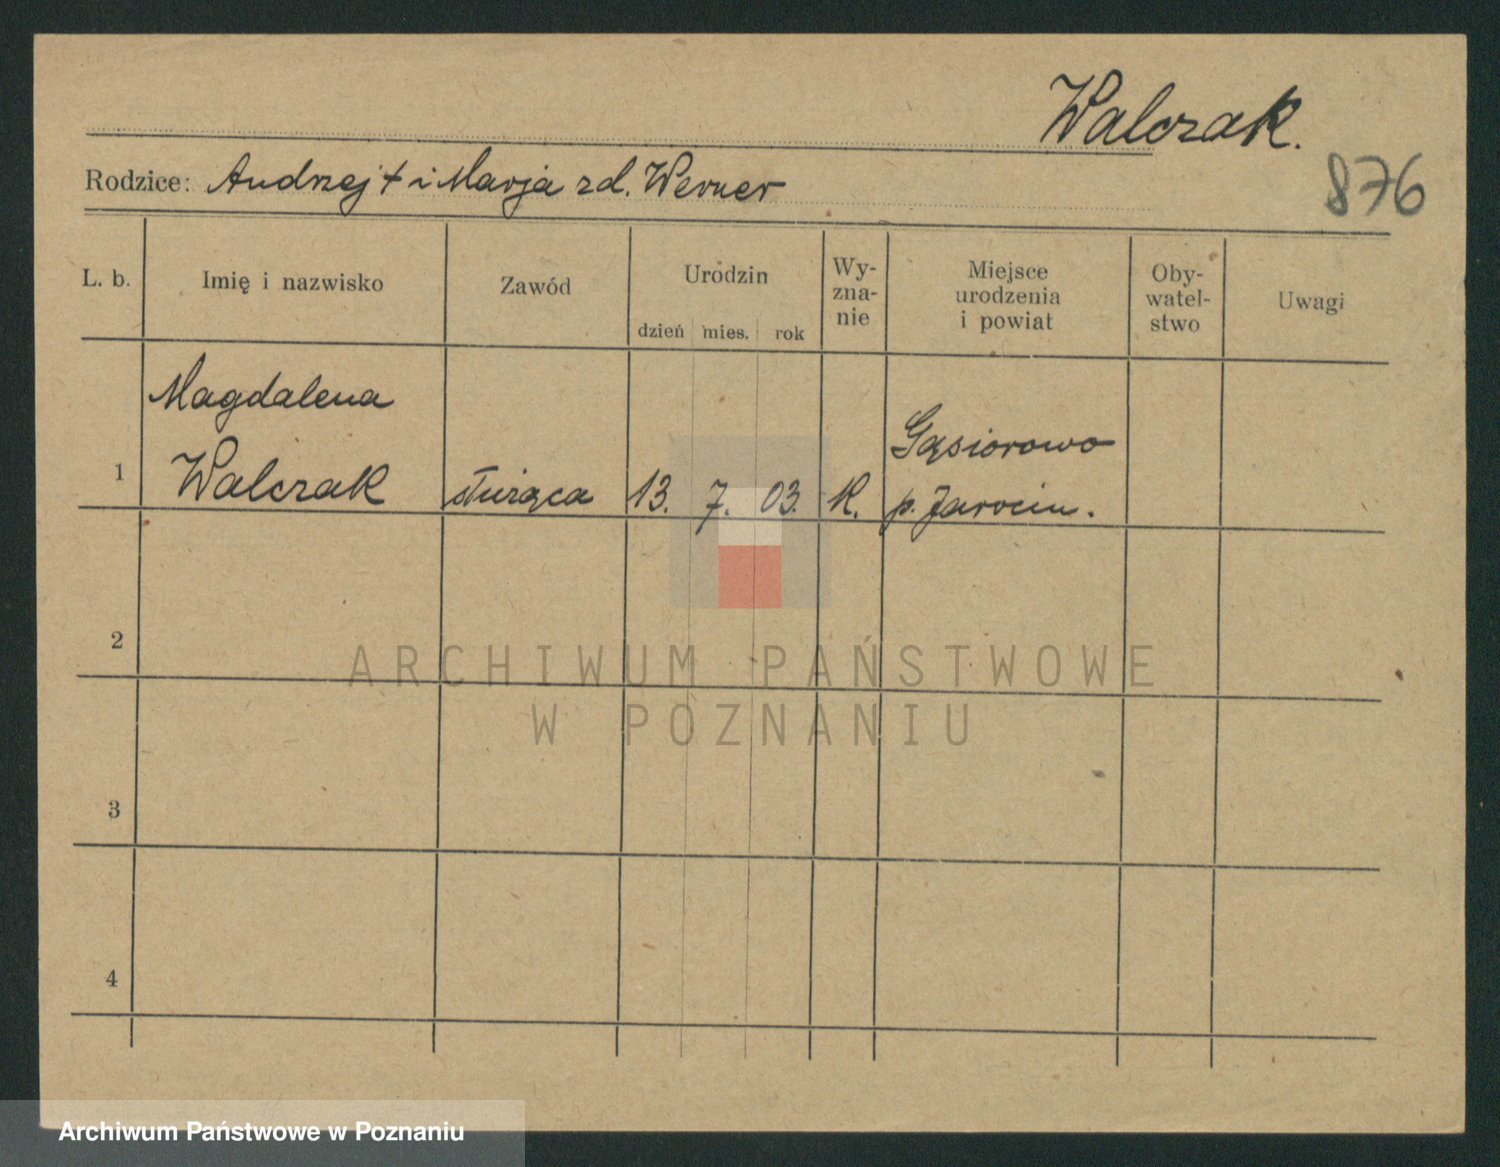 Walczak.
Rodzice: Andrzej † i Marja zd. Werner
876
L. b.
Imię i nazwisko
Zawód
Urodzin
dzień mies. rok
Wy-
zna-
nie
Miejsce
urodzenia
i powiat
Oby-
watel-
stwo
Uwagi
1
Magdalena
Walczak
służąca
13. 7. 03.
K.
Gąsiorowo
p. Jarocin.
2
3
4
ARCHIWUM PAŃSTWOWE
W POZNANIU
Archiwum Państwowe w Poznaniu